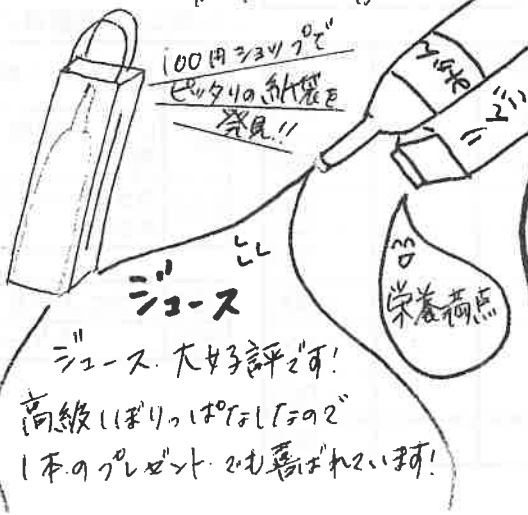 100円ショップで
ピッタリの紙袋を
発見!!
栄養満点
ジュース
ジュース、大好評です!
高級しぼりっぱなしなので
1本のプレゼントでも喜ばれています!